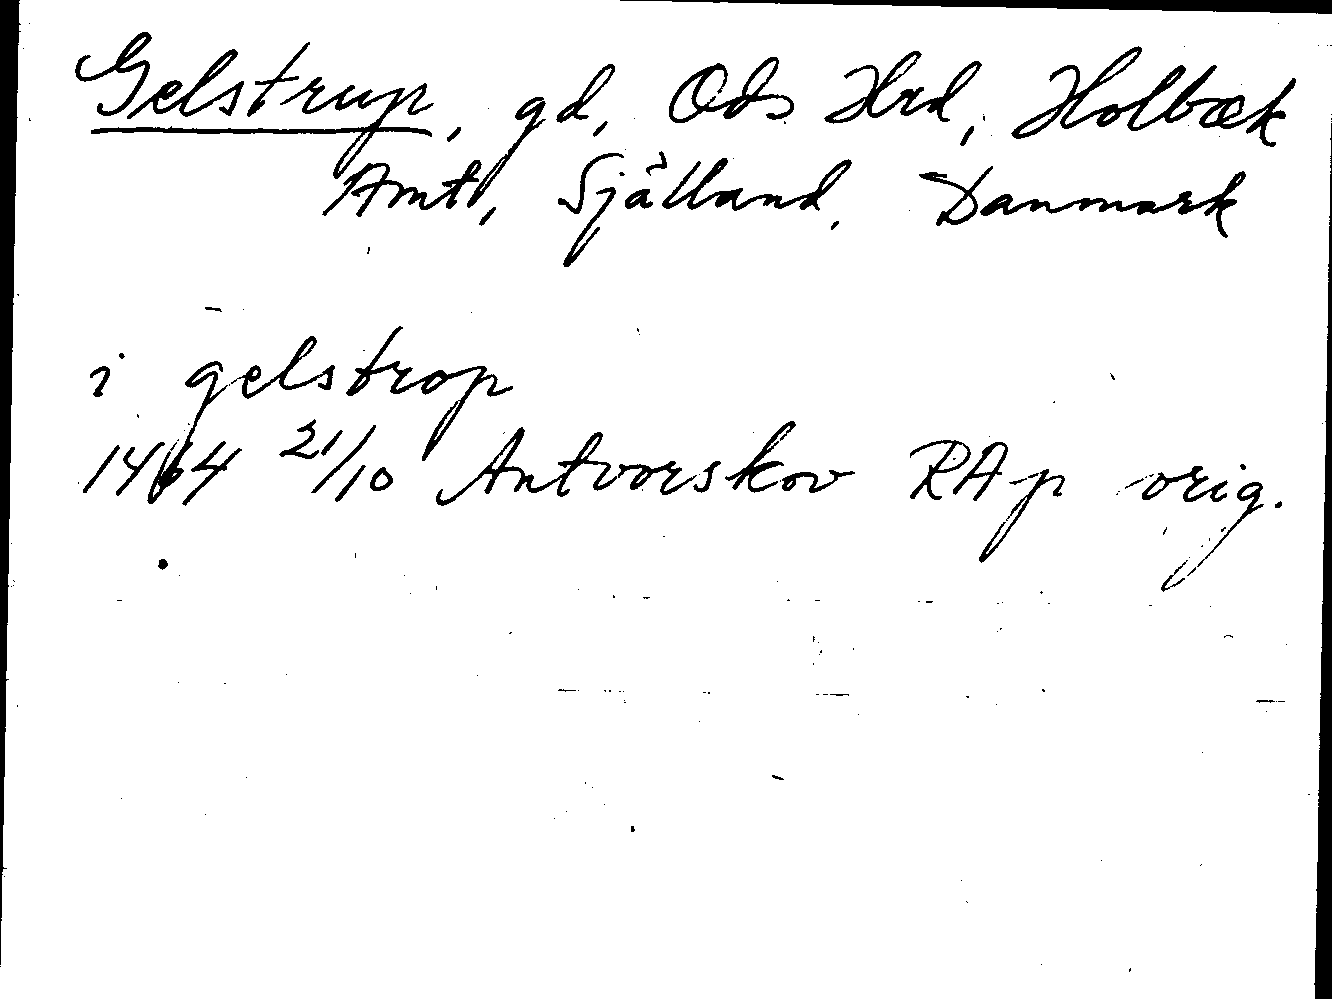 Gelstrup, gd, Ods Hrd, Holbæk
Amt, Själland, Danmark
i gelstrop
1464 21/10 Antvorskov RAp orig.